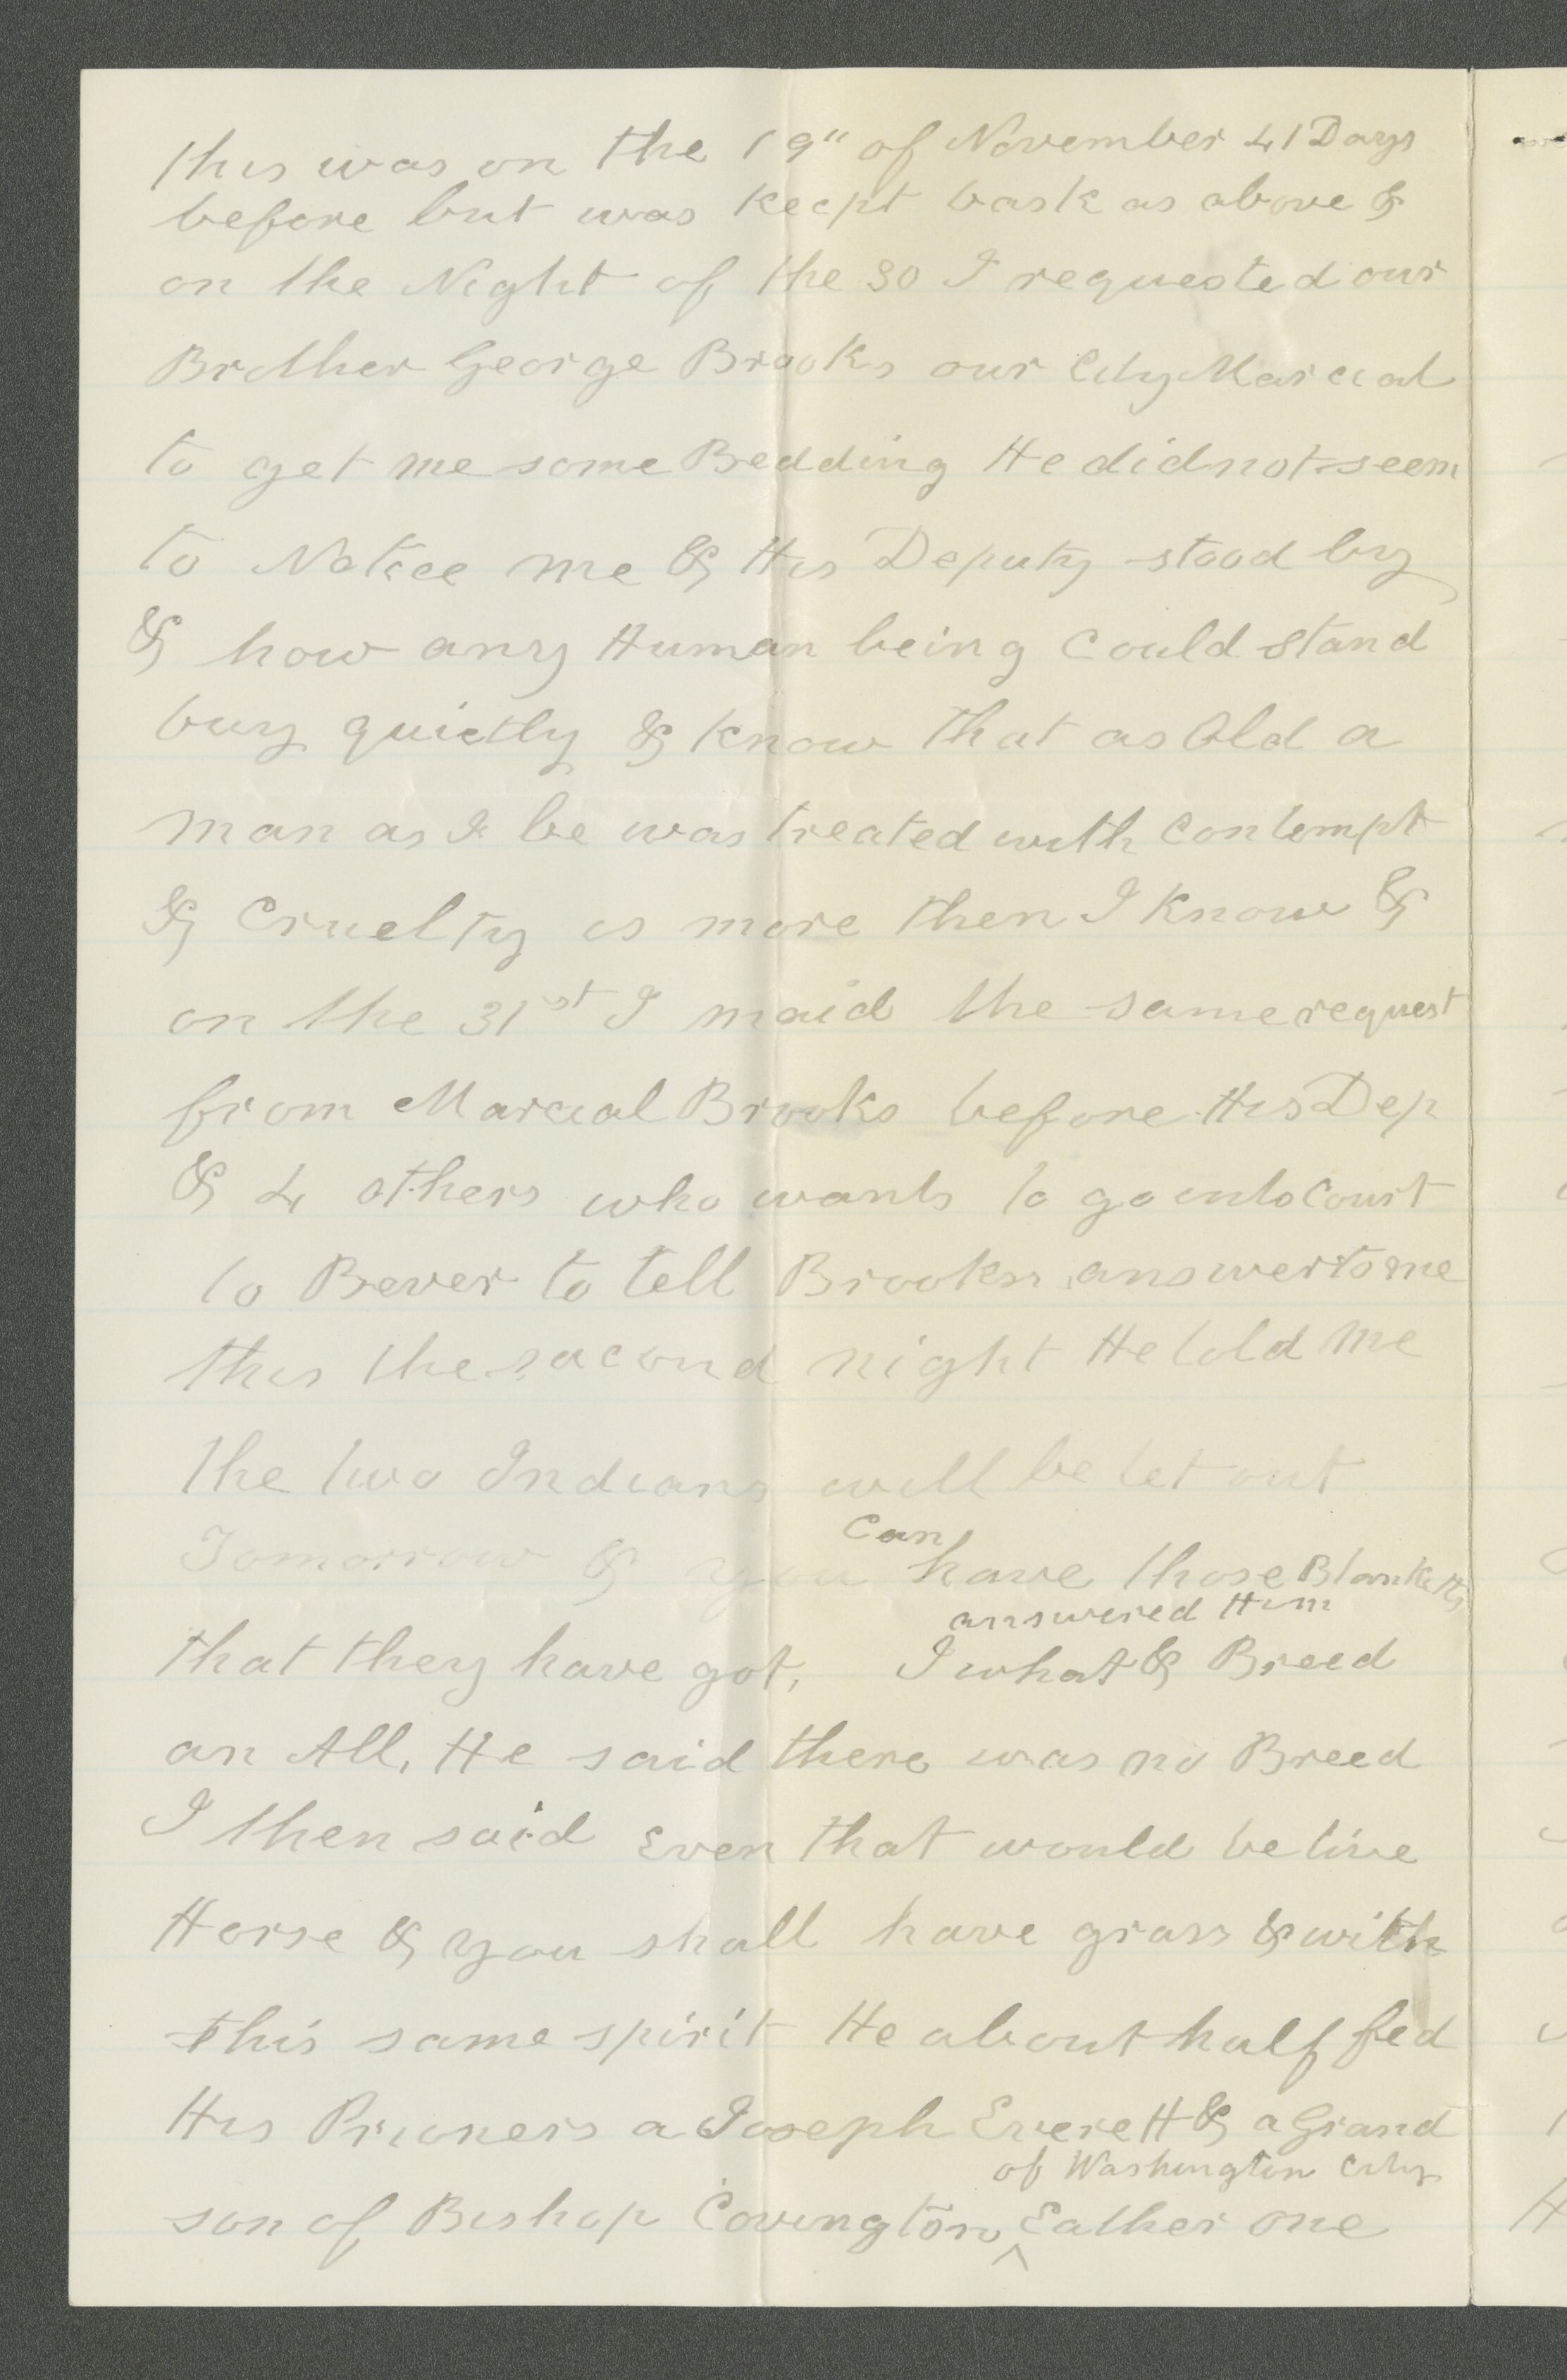 this was on the 19" of November 41 Days
before but was keept bask as above &
on the Night of the 30 I requested our
Brother George Brooks our City Marcial
to get me some Bedding He did not seem
to Notice me & His Deputy stood by
& how any Human being Could stand
buy quietly & know that as Old a
man as I be was treated with Contempt
& Cruelty is more then I know &
on the 31st I maid the same request
from Marcial Brooks before His Dep
& 4 others who wants to go into Court
to Bever to tell Brooks answer to me
this the second night He told me
the two Indians will be let out
Can
Tomorrow & you have those Blanketts
answered Him
that they have got, I what & Breed
an All, He said there was no Breed
I then said Even that would be live
Horse & you shall have grass & with
this same spirit He about half fed
His Prisoners a Joseph Everett & a Grand
of Washington City
son of Bishop Covington, Eather one